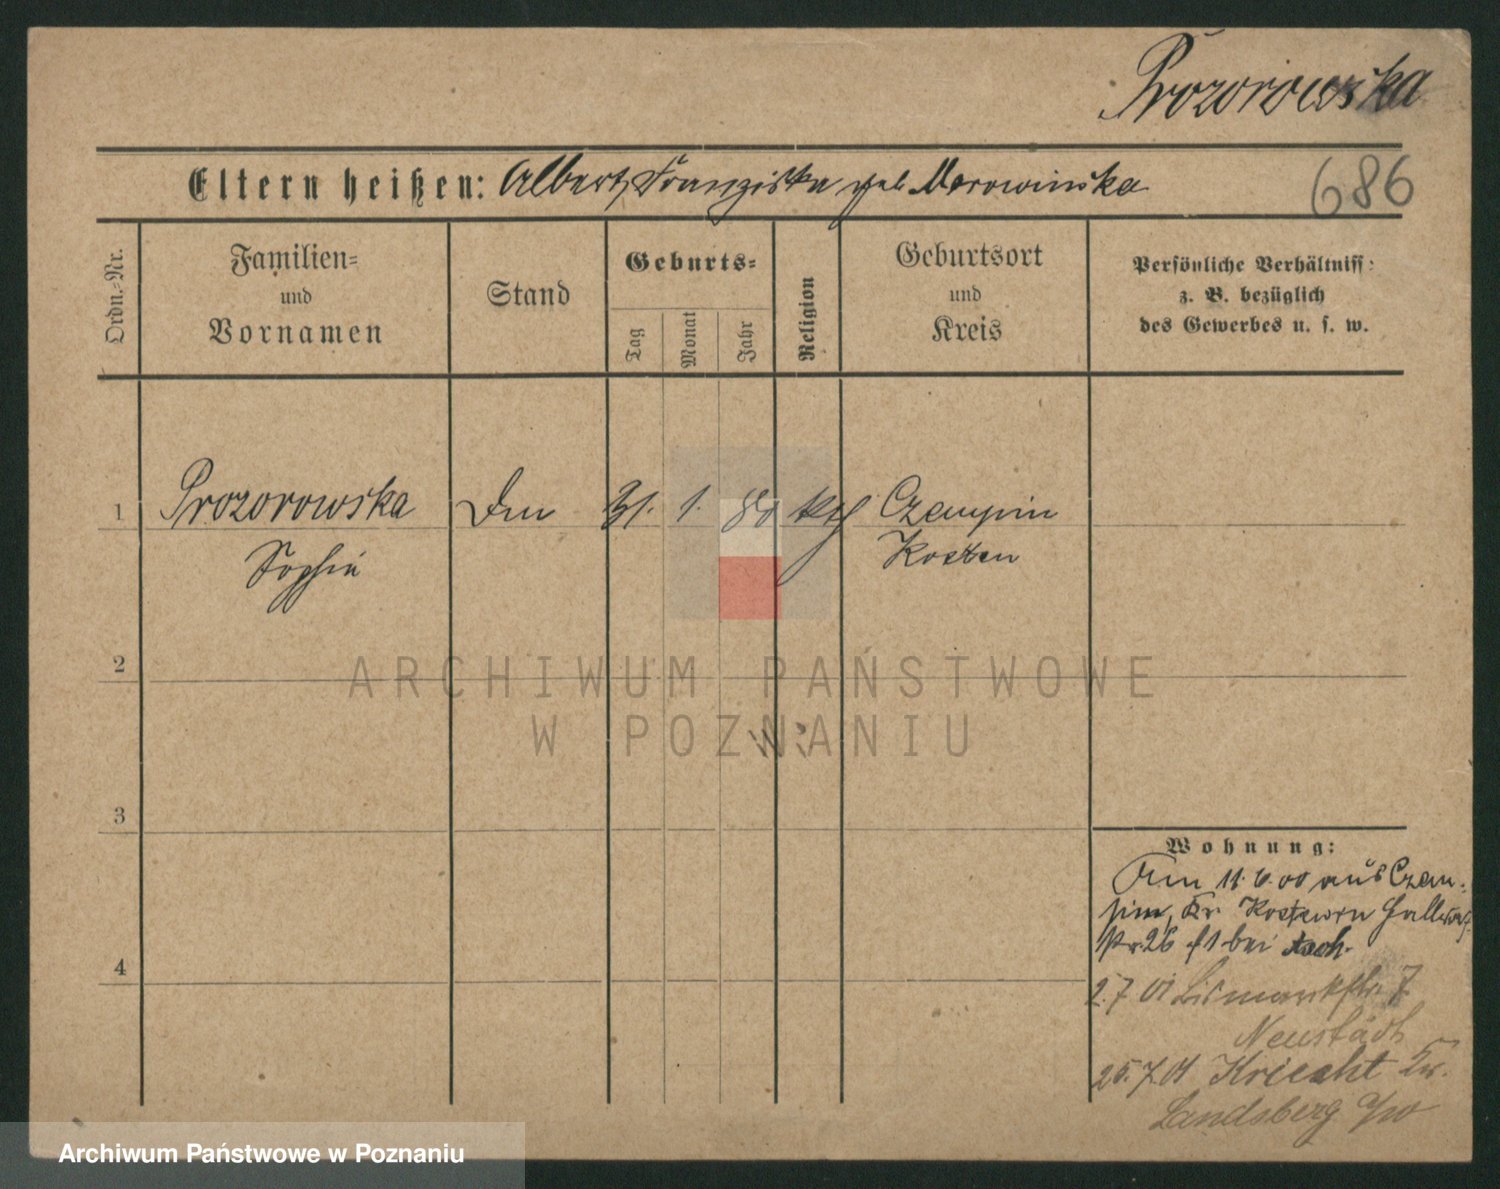 Prozorowska
Eltern heißen: Albert, Franziska geb Morowinska
686
Ordn.-Nr.
Familien-
und
Vornamen
Stand
Geburts-
Tag
Monat
Jahr
Religion
Geburtsort
und
Kreis
Persönliche Verhältniss
z. B. bezüglich
des Gewerbes u. s. w.
1 Prozorowska 31. 1. 80 kth Czempin
Sophie Kosten
2
ARCHIWUM PAŃSTWOWE
W POZNANIU
3
Wohnung:
Am 11.6.00 aus Czem-
pin, Kr
26 bei
4
2.7 01 Bismarckstr 7
Neustadt
25.7.01 Kriescht Kr.
Landsberg
Archiwum Państwowe w Poznaniu